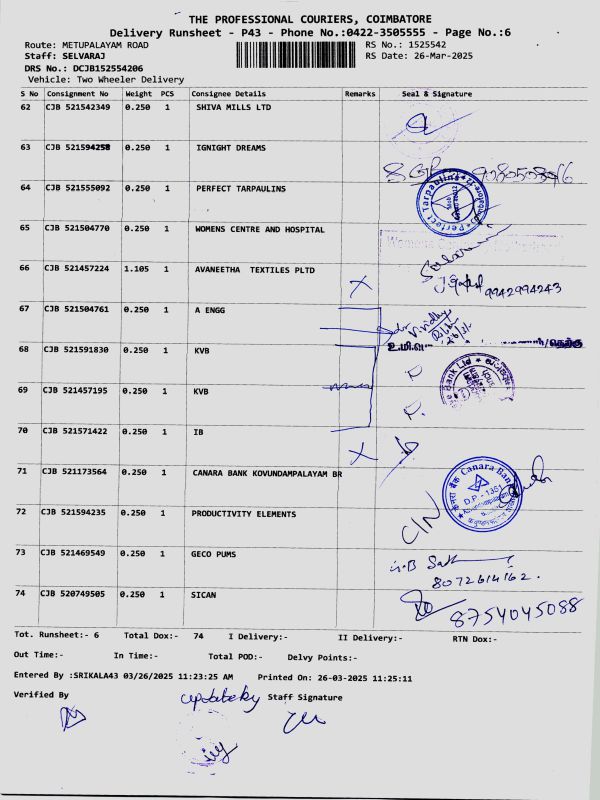 THE PROFESSIONAL COURIERS, COIMBATORE
Delivery Runsheet - P43 - Phone No.:0422-3505555 - Page No.:6
Route: METUPALAYAM ROAD RS No.: 1525542
Staff: SELVARAJ RS Date: 26-Mar-2025
DRS No.: DCJB152554206
Vehicle: Two Wheeler Delivery
S No Consignment No Weight PCS Consignee Details Remarks Seal & Signature
62 CJB 521542349 0.250 1 SHIVA MILLS LTD
63 CJB 521594258 0.250 1 IGNIGHT DREAMS
64 CJB 521555092 0.250 1 PERFECT TARPAULINS
Perfect Tarpaulins
65 CJB 521504770 0.250 1 WOMENS CENTRE AND HOSPITAL
66 CJB 521457224 1.105 1 AVANEETHA TEXTILES PLTD X 9942994243
67 CJB 521504761 0.250 1 A ENGG
68 CJB 521591830 0.250 1 KVB
69 CJB 521457195 0.250 1 KVB
Bank Ltd
70 CJB 521571422 0.250 1 IB X
71 CJB 521173564 0.250 1 CANARA BANK KOVUNDAMPALAYAM BR
Canara Bank
D.P. - 1361
72 CJB 521594235 0.250 1 PRODUCTIVITY ELEMENTS
73 CJB 521469549 0.250 1 GECO PUMS
8072614162.
74 CJB 520749505 0.250 1 SICAN 8754045088
Tot. Runsheet:- 6 Total Dox:- 74 I Delivery:- II Delivery:- RTN Dox:-
Out Time:- In Time:- Total POD:- Delvy Points:-
Entered By :SRIKALA43 03/26/2025 11:23:25 AM Printed On: 26-03-2025 11:25:11
Verified By Staff Signature